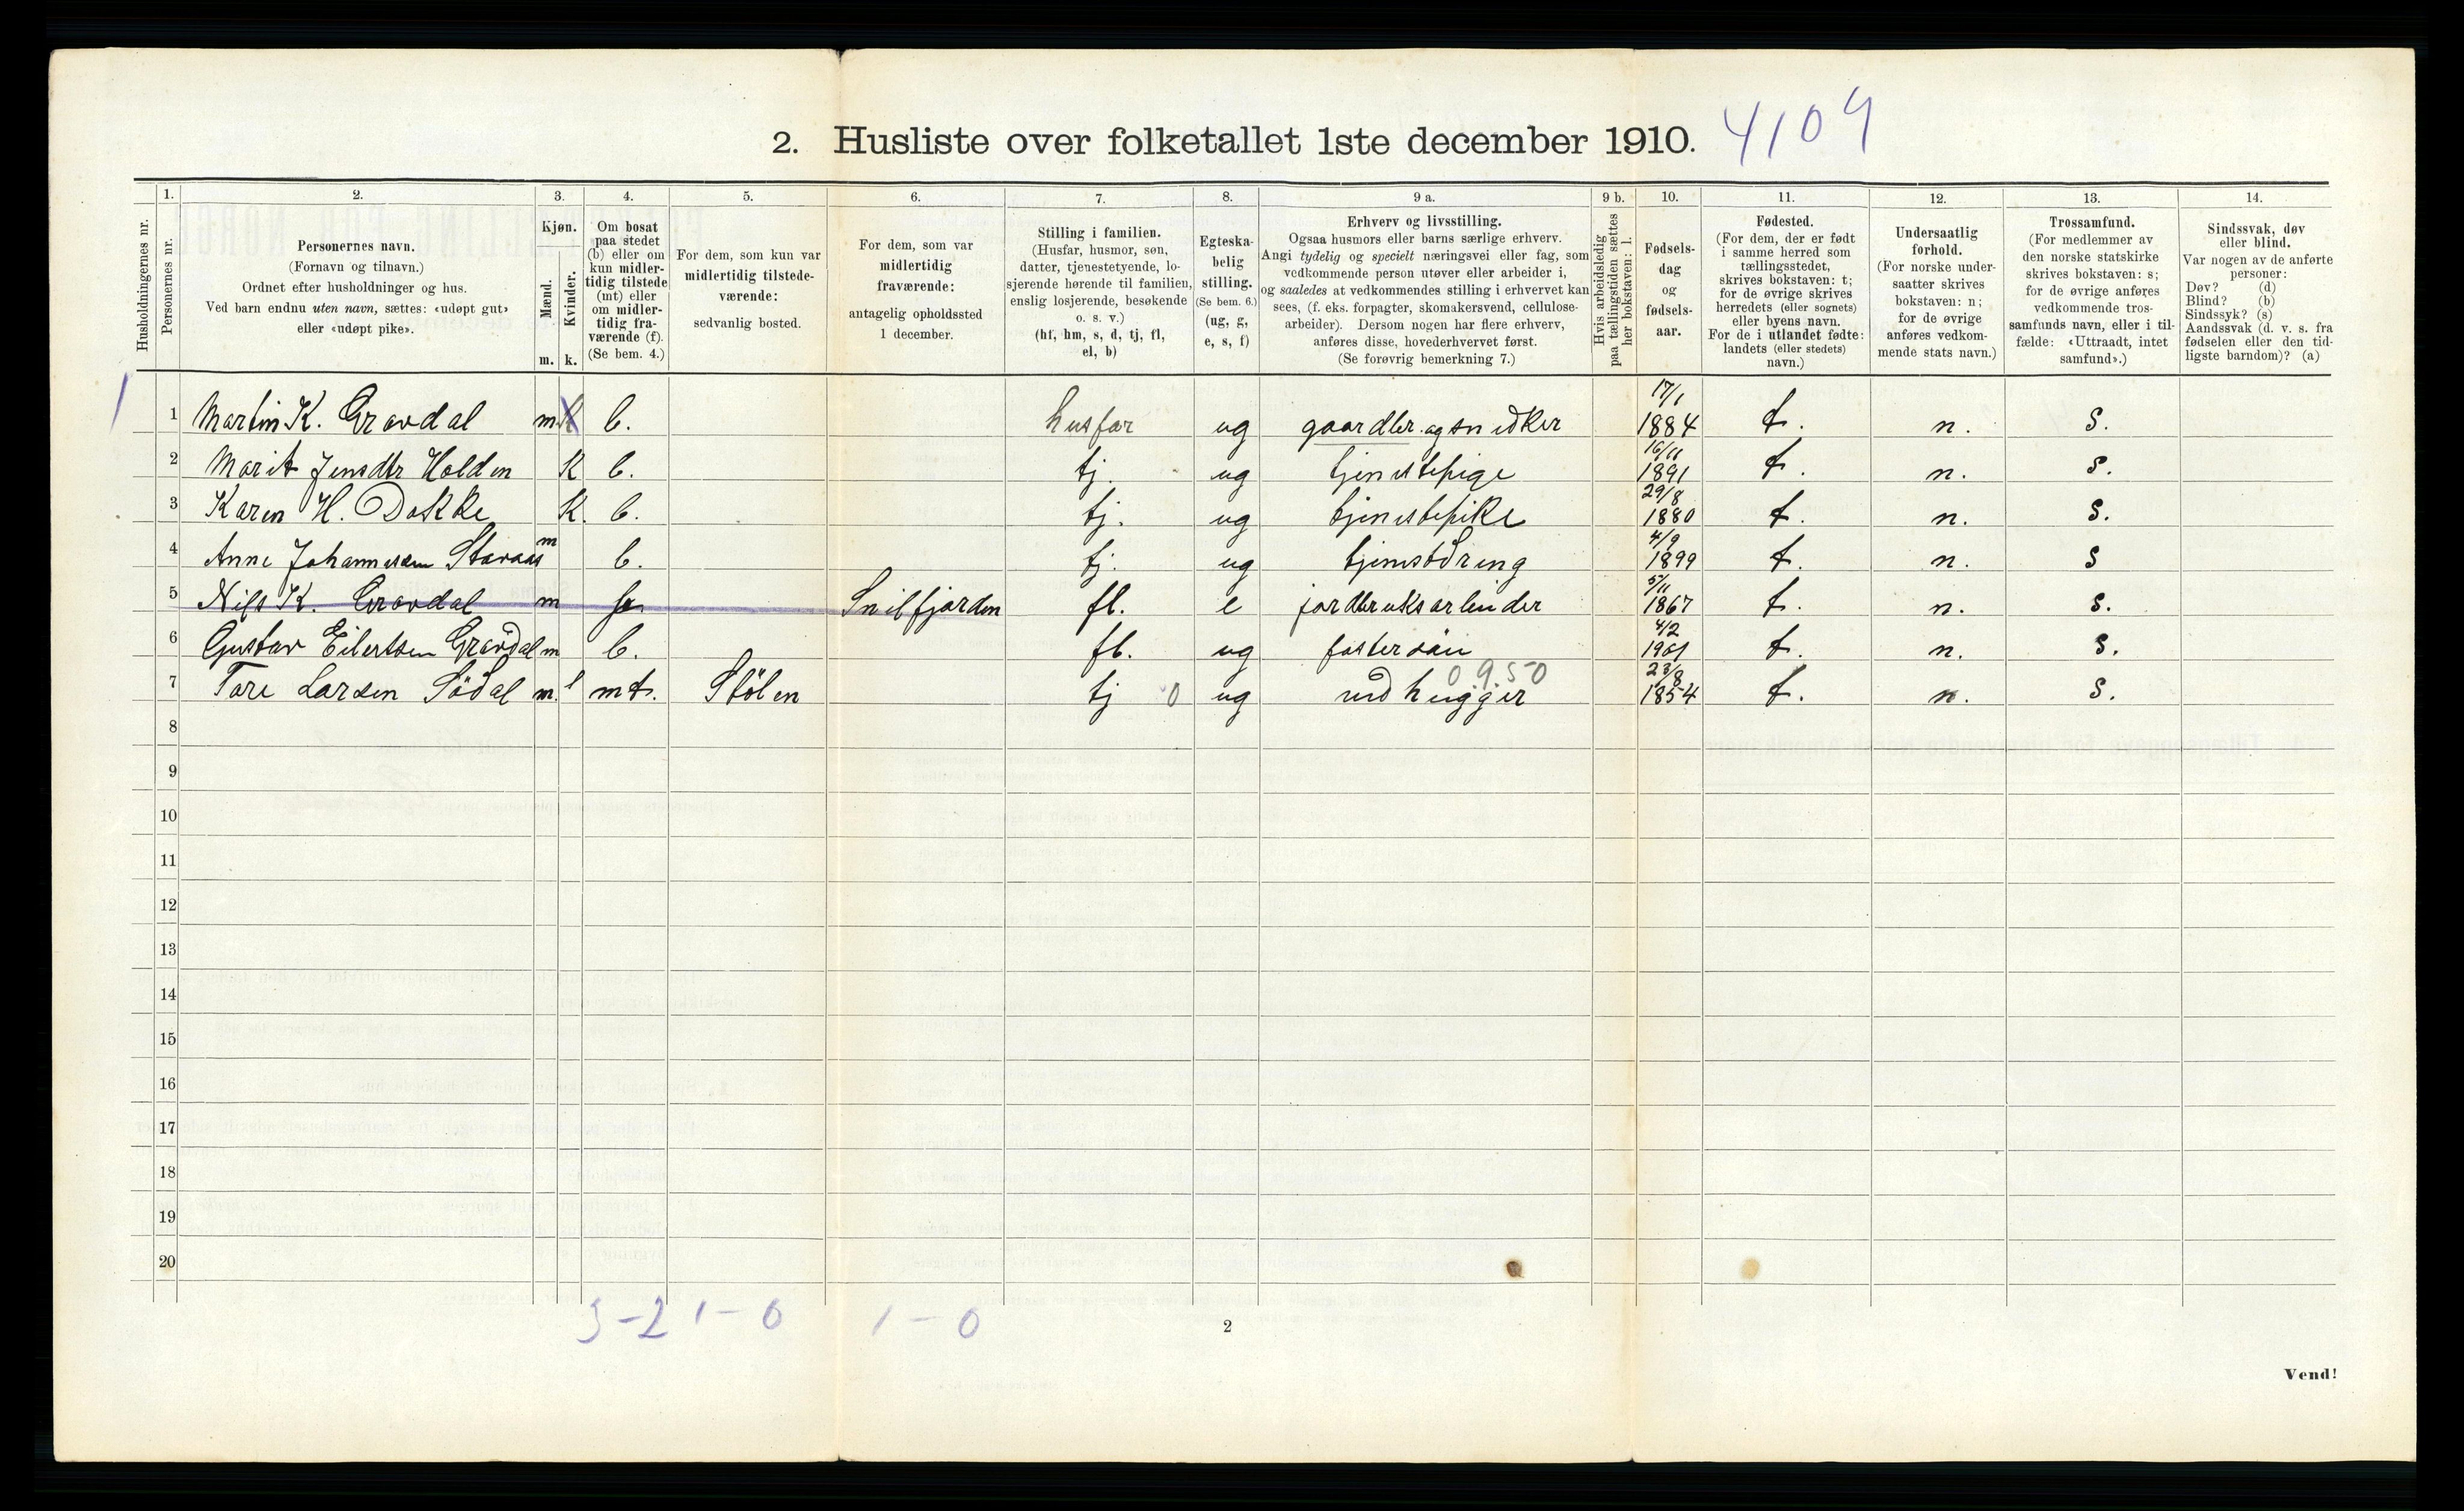 2. Husliste over folketallet 1ste december 1910. 4109
Husholdningernes nr.
1. Personernes nr.
2. Personernes navn.
(Fornavn og tilnavn.)
Ordnet efter husholdninger og hus.
Ved barn endnu uten navn, sættes: «udøpt gut»
eller «udøpt pike».
3. Kjøn.
Mænd. Kvinder.
m. k.
4. Om bosat
paa stedet
(b) eller om
kun midler-
tidig tilstede
(mt) eller
om midler-
tidig fra-
værende (f).
(Se bem. 4.)
5. For dem, som kun var
midlertidig tilstede-
værende:
sedvanlig bosted.
6. For dem, som var
midlertidig
fraværende:
antagelig opholdssted
1 december.
7. Stilling i familien.
(Husfar, husmor, søn,
datter, tjenestetyende, lo-
sjerende hørende til familien,
enslig losjerende, besøkende
o. s. v.)
(hf, hm, s, d, tj, fl,
el, b)
8. Egteska-
belig
stilling.
(Se bem. 6.)
(ug, g,
e, s, f)
9 a. Erhverv og livsstilling.
Ogsaa husmors eller barns særlige erhverv.
Angi tydelig og specielt næringsvei eller fag, som
vedkommende person utøver eller arbeider i,
og saaledes at vedkommendes stilling i erhvervet kan
sees, (f. eks. forpagter, skomakersvend, cellulose-
arbeider). Dersom nogen har flere erhverv,
anføres disse, hovederhvervet først.
(Se forøvrig bemerkning 7.)
9 b. Hvis arbeidsledig
paa tællingstiden sættes
her bokstaven: l.
10. Fødsels-
dag
og
fødsels-
aar.
11. Fødested.
(For dem, der er født
i samme herred som
tællingsstedet,
skrives bokstaven: t;
for de øvrige skrives
herredets (eller sognets)
eller byens navn.
For de i utlandet fødte:
landets (eller stedets)
navn.)
12. Undersaatlig
forhold.
(For norske under-
saatter skrives
bokstaven: n;
for de øvrige
anføres vedkom-
mende stats navn.)
13. Trossamfund.
(For medlemmer av
den norske statskirke
skrives bokstaven: s;
for de øvrige anføres
vedkommende tros-
samfunds navn, eller i til-
fælde: «Uttraadt, intet
samfund».)
14. Sindssvak, døv
eller blind.
Var nogen av de anførte
personer:
Døv? (d)
Blind? (b)
Sindssyk? (s)
Aandssvak (d. v. s. fra
fødselen eller den tid-
ligste barndom)? (a)
1 1 Martin K. Gravdal m k b. husfar ug gaardbr. og snedker 17/1 1884 t. n. s.
2 Marit Jensdtr Holden K b. tj. ug tjenestepige 16/11 1891 t. n. s.
3 Karen H. Dokke K. b. tj. ug tjenestepike 29/8 1880 t. n. s.
4 Anne Johannesen Stavaas m b. tj. ug tjenestdreng 4/9 1899 t. n. s
5 Nils K. Gravdal m f Snilfjorden fl. e jordbruksarbeider 5/11 1867 t. n. s.
6 Gustav Eilertsen Gravdal m b. fl. ug fostersøn 4/2 1901 t. n. s.
7 Tore Larsen Södal m. mt. Stölen tj 0 ug vedhugger 0950 23/8 1854 t. n. s.
8
9
10
11
12
13
14
15
16
17
18
19
20
3-2 1-0 1-0
2
Vend!